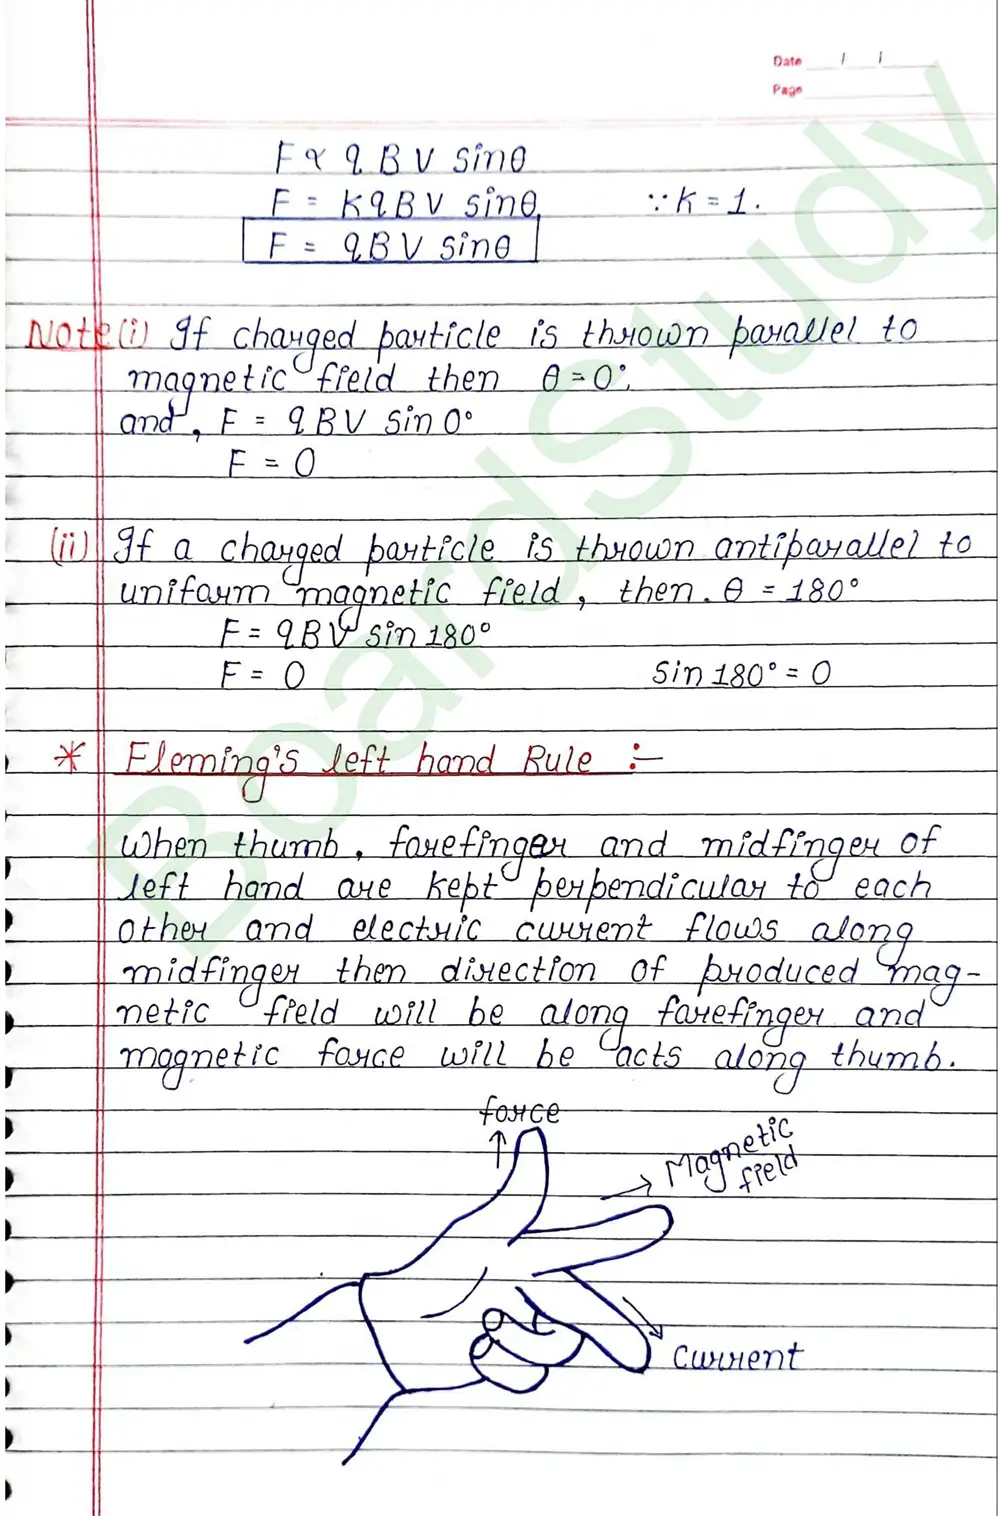 Date / /
Page
F ∝ qBV sinθ
F = KqBV sinθ ∵ K = 1.
F = qBV sinθ
Note (i) If charged particle is thrown parallel to
magnetic field then θ = 0°.
and, F = qBV sin 0°
F = 0
(ii) If a charged particle is thrown antiparallel to
uniform magnetic field, then. θ = 180°
F = qBV sin 180°
F = 0 sin 180° = 0
* Fleming's left hand Rule :-
When thumb, forefinger and midfinger of
left hand are kept perpendicular to each
other and electric current flows along
midfinger then direction of produced mag-
netic field will be along forefinger and
magnetic force will be acts along thumb.
force
Magnetic
field
Current
BoardStudy